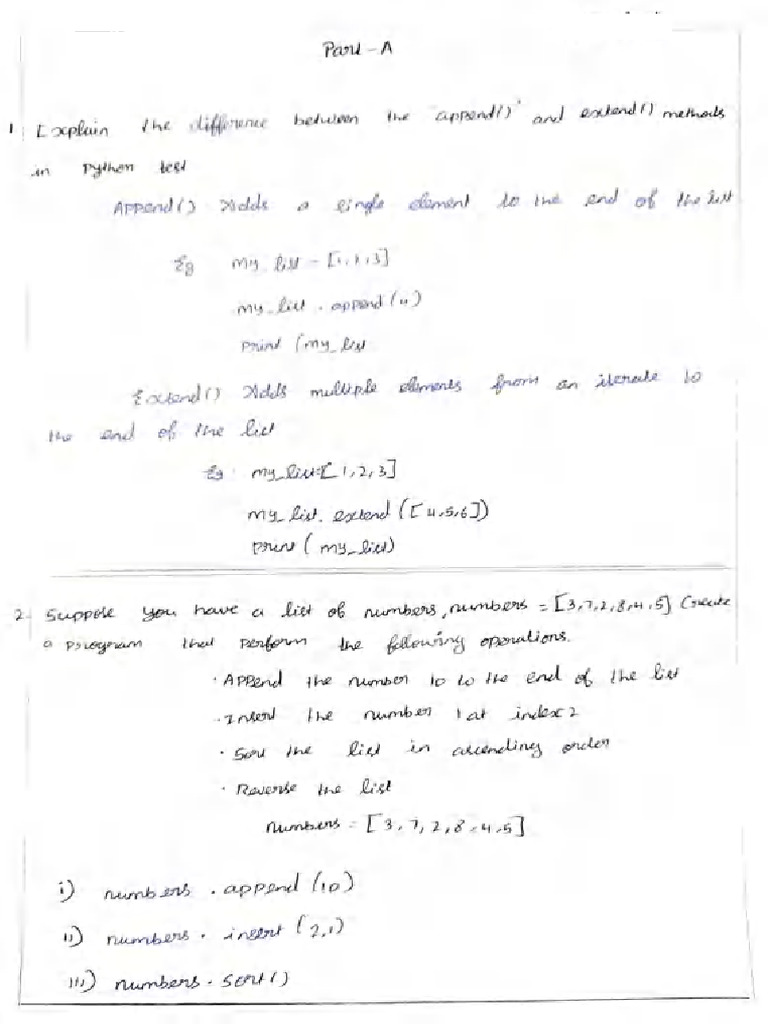 Part - A
1. Explain the difference between the "append()" and extend() methods
in Python test
Append() Adds a single element to the end of the list
Eg my_list = [1,2,3]
my_list . append (4)
print (my_list
Extend() Adds multiple elements from an iterate to
the end of the list
Eg my_list=[1,2,3]
my_list. extend ([4,5,6])
print ( my_list)
2. Suppose you have a list of numbers, numbers = [3,7,2,8,4,5] Create
a program that perform the following operations.
· Append the number 10 to the end of the list
· Insert the number 1 at index 2
· Sort the list in ascending order
· Reverse the list
numbers = [3,7,2,8,4,5]
i) numbers . append (10)
ii) numbers . insert (2,1)
iii) numbers . sort()